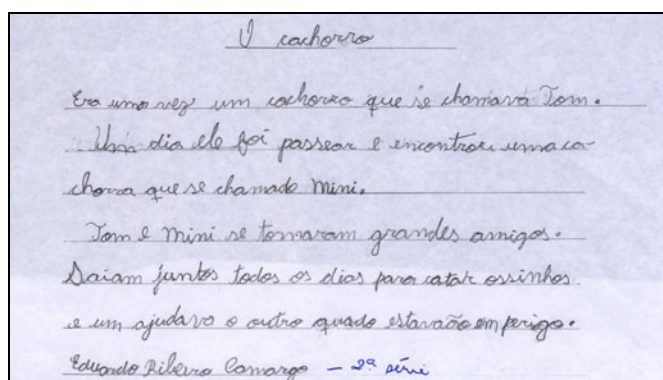 O cachorro
Era uma vez um cachorro que se chamava Tom.
Um dia ele foi passear e encontrou uma ca-
chorra que se chamado Mini.
Tom e Mini se tornaram grandes amigos.
Saiam juntos todos os dias para catar ossinhos
e um ajudava o outro quado estavaão em perigo.
Eduardo Ribeiro Camargo – 2ª série